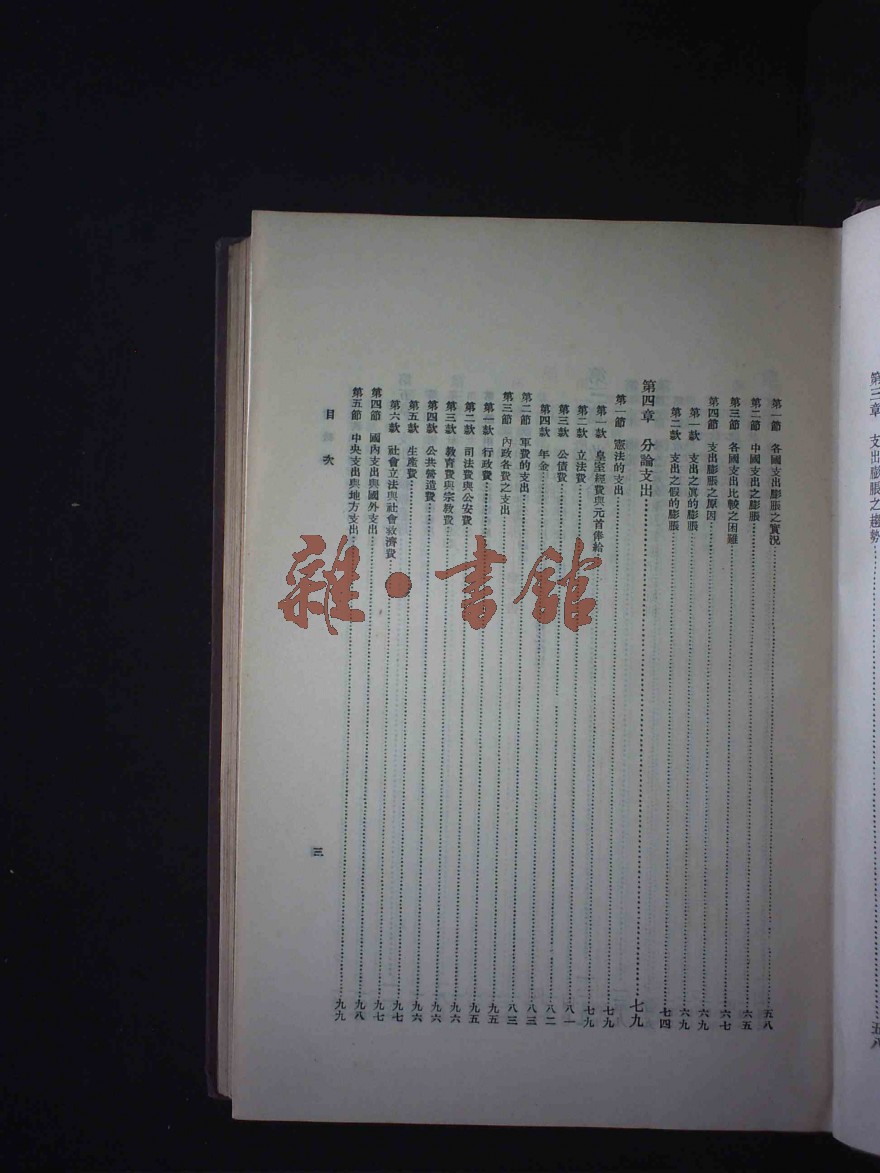 第三章 支出膨脹之趨勢……五八
第一節 各國支出膨脹之實況……五八
第二節 中國支出之膨脹……六五
第三節 各國支出比較之困難……六七
第四節 支出膨脹之原因……六九
第一款 支出之眞的膨脹……六九
第二款 支出之假的膨脹……七四
第四章 分論支出……七九
第一節 憲法的支出……七九
第一款 皇室經費與元首俸給……七九
第二款 立法費……八一
第三款 公債費……八二
第四款 年金……八三
第二節 軍費的支出……八三
第三節 內政各費之支出……九五
第一款 行政費……九五
第二款 司法費與公安費……九六
第三款 教育費與宗教費……九六
第四款 公共營造費……九六
第五款 生產費……九七
第六款 社會立法與社會救濟費……九七
第四節 國內支出與國外支出……九八
第五節 中央支出與地方支出……九九
目次
三
雜·書館